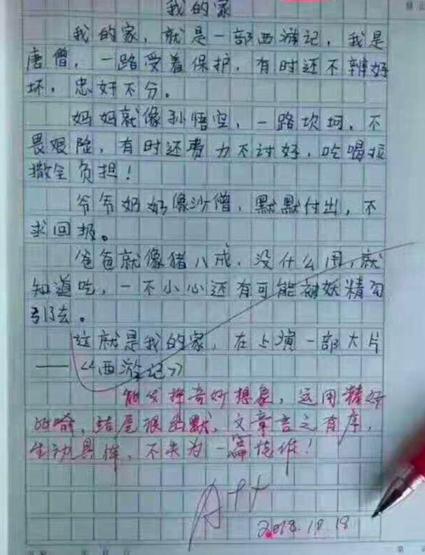 我的家
我的家，就是一部西游记，我是
唐僧，一路受着保护，有时还不辨好
坏，忠奸不分。
妈妈就像孙悟空，一路坎坷，不
畏艰险，有时还费力不讨好，吃喝拉
撒全负担！
爷爷奶奶像沙僧，默默付出，不
求回报。
爸爸就像猪八戒，没什么用，就
知道吃，一不小心还有可能被妖精勾
引去。
这就是我的家，在上演一部大片
——《西游记》
能发挥奇妙想象，运用精妙
的比喻，结尾很幽默，文章言之有序，
生动具体，不失为一篇佳作！
A++
2018.10.18